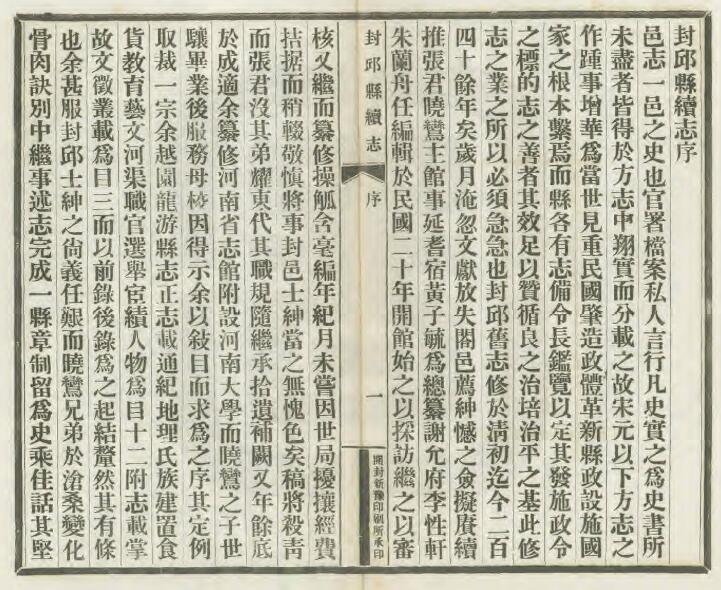 封邱縣續志序
邑志一邑之史也官署檔案私人言行凡史實之爲史書所
未盡者皆得於方志中翔實而分載之故宋元以下方志之
作踵事增華爲當世見重民國肇造政體革新縣政設施國
家之根本繫焉而縣各有志備令長鑑覽以定其發施政令
之標的志之善者其效足以贊循良之治培治平之基此修
志之業之所以必須急急也封邱舊志修於淸初迄今二百
四十餘年矣歲月淹忽文獻放失闔邑薦紳憾之僉擬賡續
推張君曉鸞主館事延耆宿黃子毓爲總纂謝允府李性軒
朱蘭舟任編輯於民國二十年開館始之以採訪繼之以審
封邱縣續志
序
一
開封新豫印刷所承印
核又繼而纂修操觚含毫編年紀月未嘗因世局擾攘經費
拮据而稍輟敬愼將事封邑士紳當之無愧色矣稿將殺靑
而張君沒其弟耀東代其職規隨繼承拾遺補闕又年餘底
於成適余纂修河南省志館附設河南大學而曉鸞之子世
驤畢業後服務母校因得示余以敍目而求爲之序其定例
取裁一宗余越園龍游縣志正志載通紀地理氏族建置食
貨教育藝文河渠職官選舉宦績人物爲目十二附志載掌
故文徵叢載爲目三而以前錄後錄爲之起結釐然其有條
也余甚服封邱士紳之尙義任艱而曉鸞兄弟於滄桑變化
骨肉訣別中繼事述志完成一縣章制留爲史乘佳話其堅